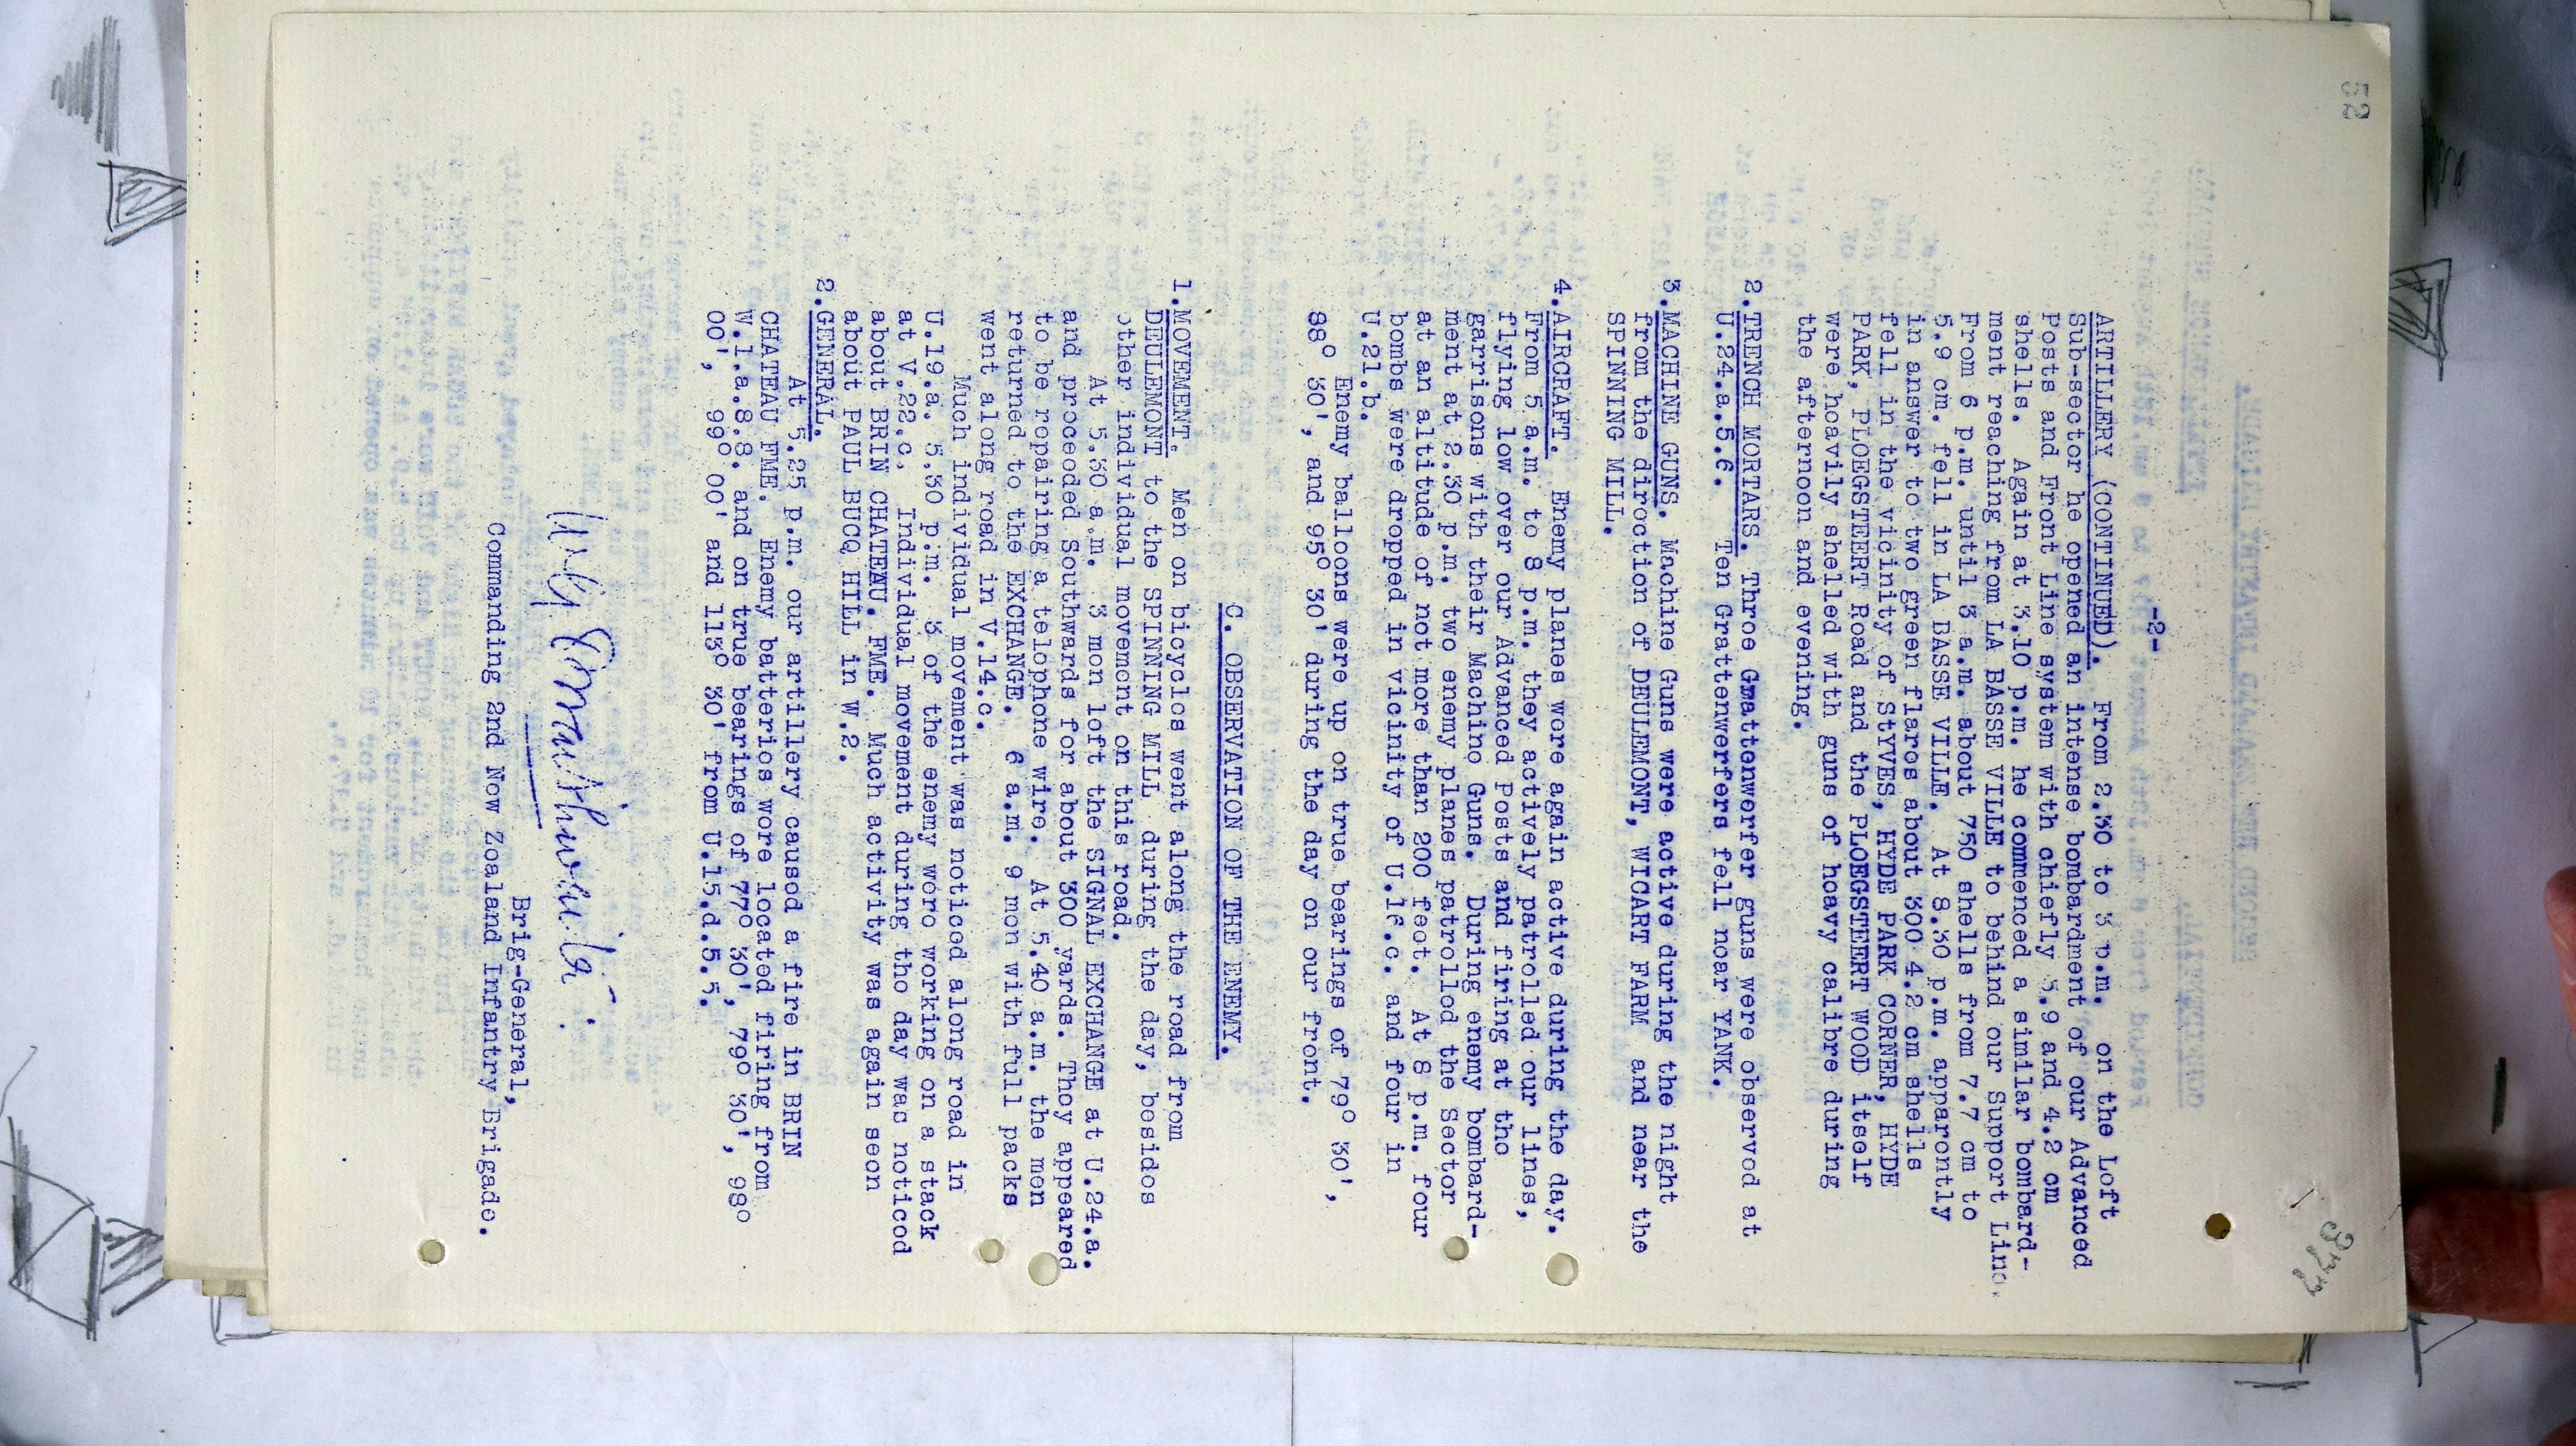 52
-2-
ARTILLERY (CONTINUED). From 2.30 to 3 p.m. on the Left
Sub-sector he opened an intense bombardment of our Advanced
Posts and Front Line system with chiefly 5.9 and 4.2 cm
shells. Again at 3.10 p.m. he commenced a similar bombard-
ment reaching from LA BASSE VILLE to behind our Support Line.
From 6 p.m. until 3 a.m. about 750 shells from 7.7 cm to
5.9 cm. fell in LA BASSE VILLE. At 8.30 p.m. apparently
in answer to two green flares about 300 4.2 cm shells
fell in the vicinity of StYVES, HYDE PARK CORNER, HYDE
PARK, PLOEGSTEERT Road and the PLOEGSTEERT WOOD itself
were heavily shelled with guns of heavy calibre during
the afternoon and evening.
2. TRENCH MORTARS. Three Grattenwerfer guns were observed at
U.24.a.5.6. Ten Grattenwerfers fell near YANK.
3. MACHINE GUNS. Machine Guns were active during the night
from the direction of DEULEMONT, WICART FARM and near the
SPINNING MILL.
4. AIRCRAFT. Enemy planes were again active during the day.
From 5 a.m. to 8 p.m. they actively patrolled our lines,
flying low over our Advanced Posts and firing at the
garrisons with their Machine Guns. During enemy bombard-
ment at 2.30 p.m. two enemy planes patrolled the Sector
at an altitude of not more than 200 feet. At 8 p.m. four
bombs were dropped in vicinity of U.16.c. and four in
U.21.b.
Enemy balloons were up on true bearings of 79° 30',
88° 30', and 95° 30' during the day on our front.
C. OBSERVATION OF THE ENEMY.
1. MOVEMENT. Men on bicycles went along the road from
DEULEMONT to the SPINNING MILL during the day, besides
other individual movement on this road.
At 5.30 a.m. 3 men left the SIGNAL EXCHANGE at U.24.a.
and proceeded Southwards for about 300 yards. They appeared
to be repairing a telephone wire. At 5.40 a.m. the men
returned to the EXCHANGE. 6 a.m. 9 men with full packs
went along road in V.14.c.
Much individual movement was noticed along road in
U.19.a. 5.30 p.m. 3 of the enemy were working on a stack
at V.22.c. Individual movement during the day was noticed
about BRIN CHATEAU. FME. Much activity was again seen
about PAUL BUCQ HILL in W.2.
2. GENERAL.
At 5.25 p.m. our artillery caused a fire in BRIN
CHATEAU FME. Enemy batteries were located firing from
W.1.a.8.8. and on true bearings of 77° 30', 79° 30', 98°
00', 99° 00' and 113° 30' from U.15.d.5.5.
Brig-General,
Commanding 2nd New Zealand Infantry Brigade.